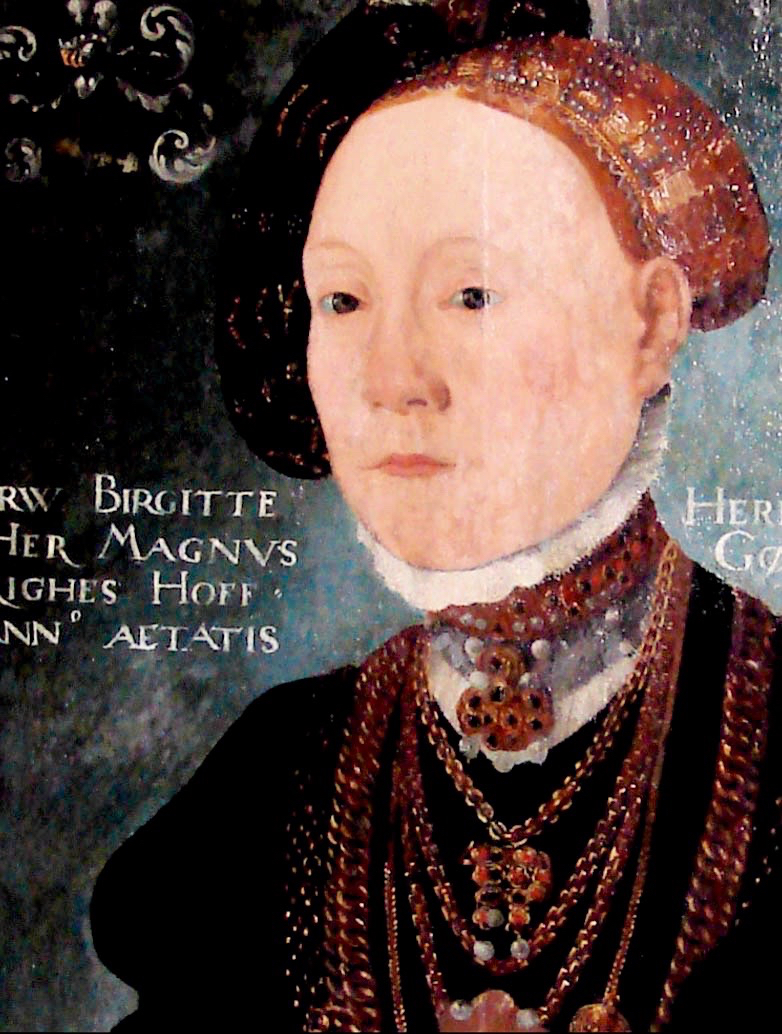 RW BIRGITTE
HER MAGNVS
IGHES HOFF
NN° AETATIS
HER
GØ